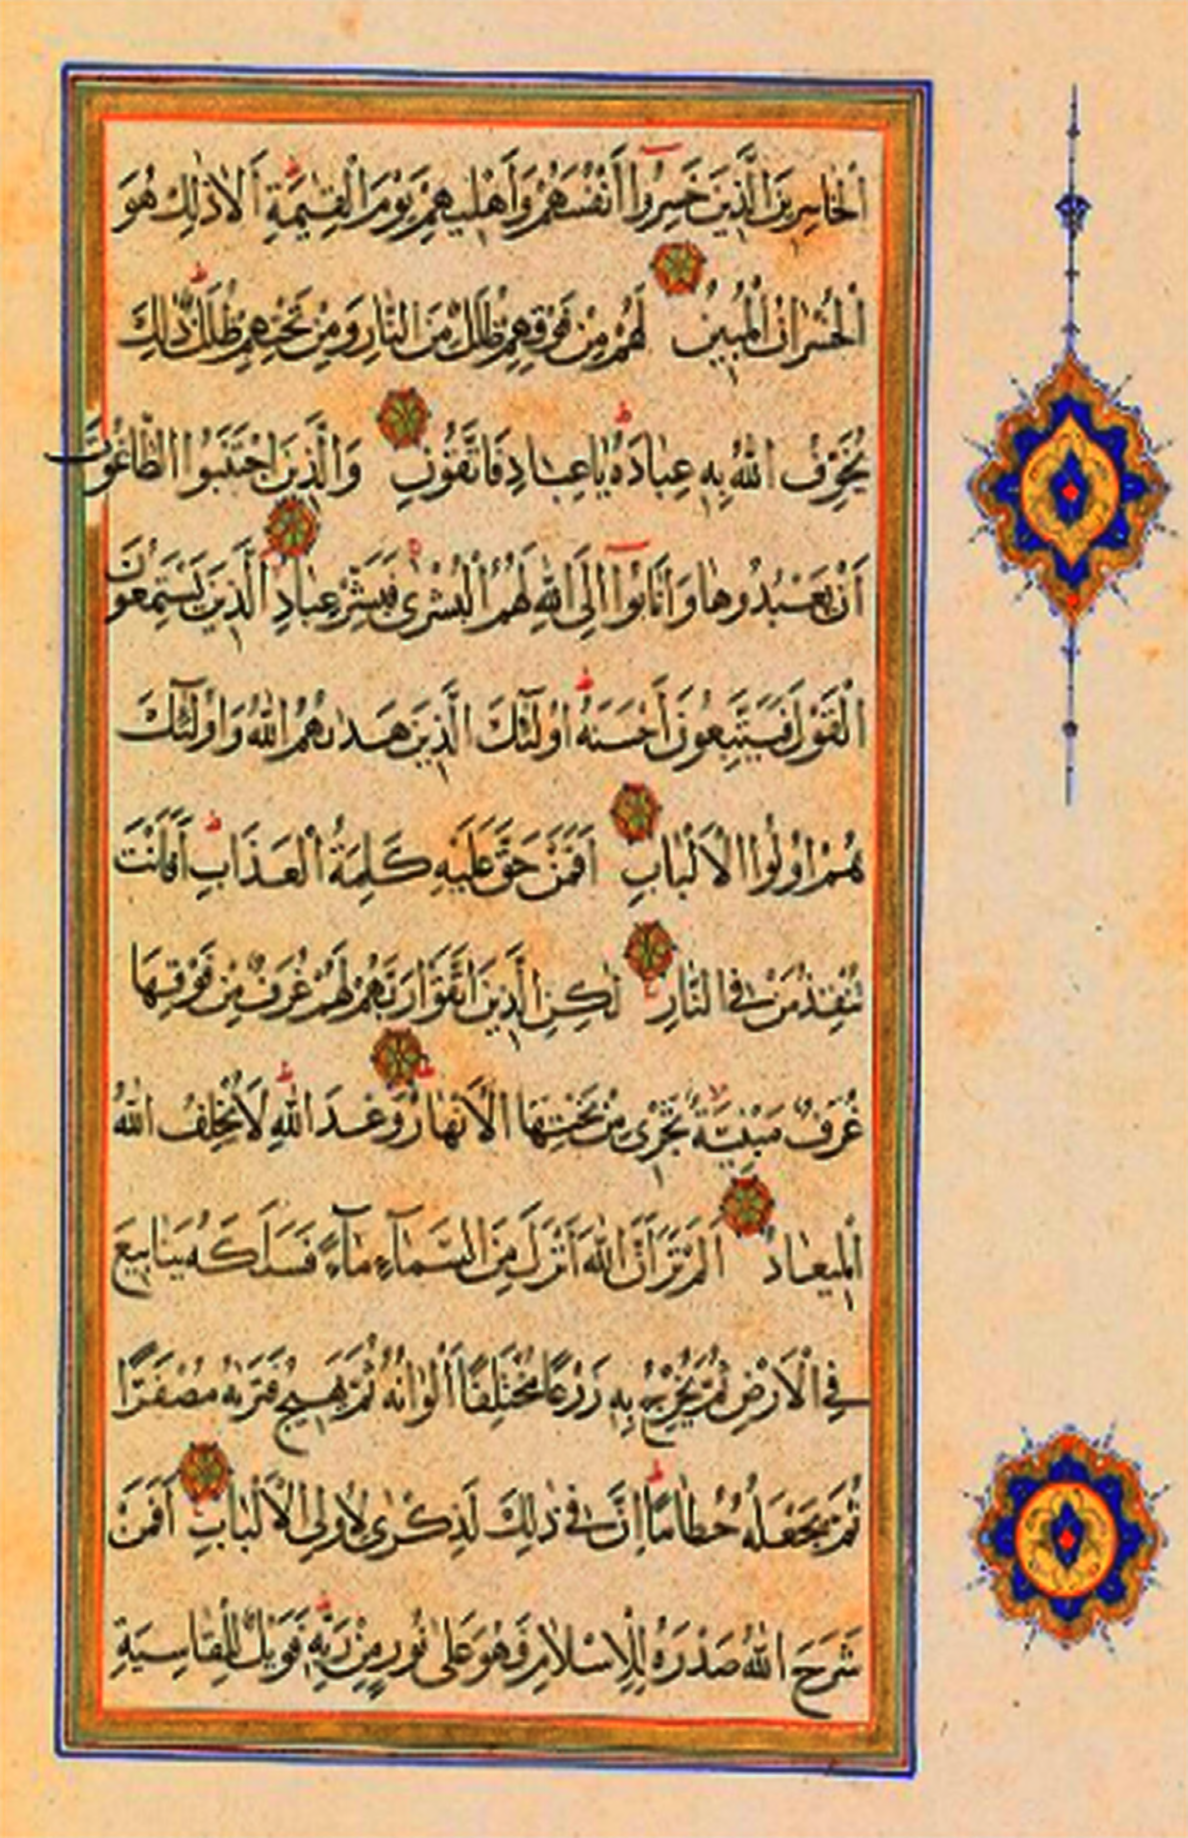 الْخَاسِرِينَ الَّذِينَ خَسِرُوا أَنْفُسَهُمْ وَأَهْلِيهِمْ يَوْمَ الْقِيٰمَةِ أَلَا ذٰلِكَ هُوَ
الْخُسْرَانُ الْمُبِينُ لَهُمْ مِنْ فَوْقِهِمْ ظُلَلٌ مِنَ النَّارِ وَمِنْ تَحْتِهِمْ ظُلَلٌ ذٰلِكَ
يُخَوِّفُ اللهُ بِهِ عِبَادَهُ يَا عِبَادِ فَاتَّقُونِ وَالَّذِينَ اجْتَنَبُوا الطَّاغُوتَ
أَنْ يَعْبُدُوهَا وَأَنَابُوا إِلَى اللهِ لَهُمُ الْبُشْرٰى فَبَشِّرْ عِبَادِ الَّذِينَ يَسْتَمِعُونَ
الْقَوْلَ فَيَتَّبِعُونَ أَحْسَنَهُ أُولٰئِكَ الَّذِينَ هَدٰىهُمُ اللهُ وَأُولٰئِكَ
هُمْ أُولُوا الْأَلْبَابِ أَفَمَنْ حَقَّ عَلَيْهِ كَلِمَةُ الْعَذَابِ أَفَأَنْتَ
تُنْقِذُ مَنْ فِي النَّارِ لٰكِنِ الَّذِينَ اتَّقَوْا رَبَّهُمْ لَهُمْ غُرَفٌ مِنْ فَوْقِهَا
غُرَفٌ مَبْنِيَّةٌ تَجْرِي مِنْ تَحْتِهَا الْأَنْهَارُ وَعْدَ اللهِ لَا يُخْلِفُ اللهُ
الْمِيعَادَ أَلَمْ تَرَ أَنَّ اللهَ أَنْزَلَ مِنَ السَّمَآءِ مَآءً فَسَلَكَهُ يَنَابِيعَ
فِي الْأَرْضِ ثُمَّ يُخْرِجُ بِهِ زَرْعًا مُخْتَلِفًا أَلْوَانُهُ ثُمَّ يَهِيجُ فَتَرٰىهُ مُصْفَرًّا
ثُمَّ يَجْعَلُهُ حُطَامًا إِنَّ فِي ذٰلِكَ لَذِكْرٰى لِأُولِي الْأَلْبَابِ أَفَمَنْ
شَرَحَ اللهُ صَدْرَهُ لِلْإِسْلَامِ فَهُوَ عَلٰى نُورٍ مِنْ رَبِّهِ فَوَيْلٌ لِلْقَاسِيَةِ